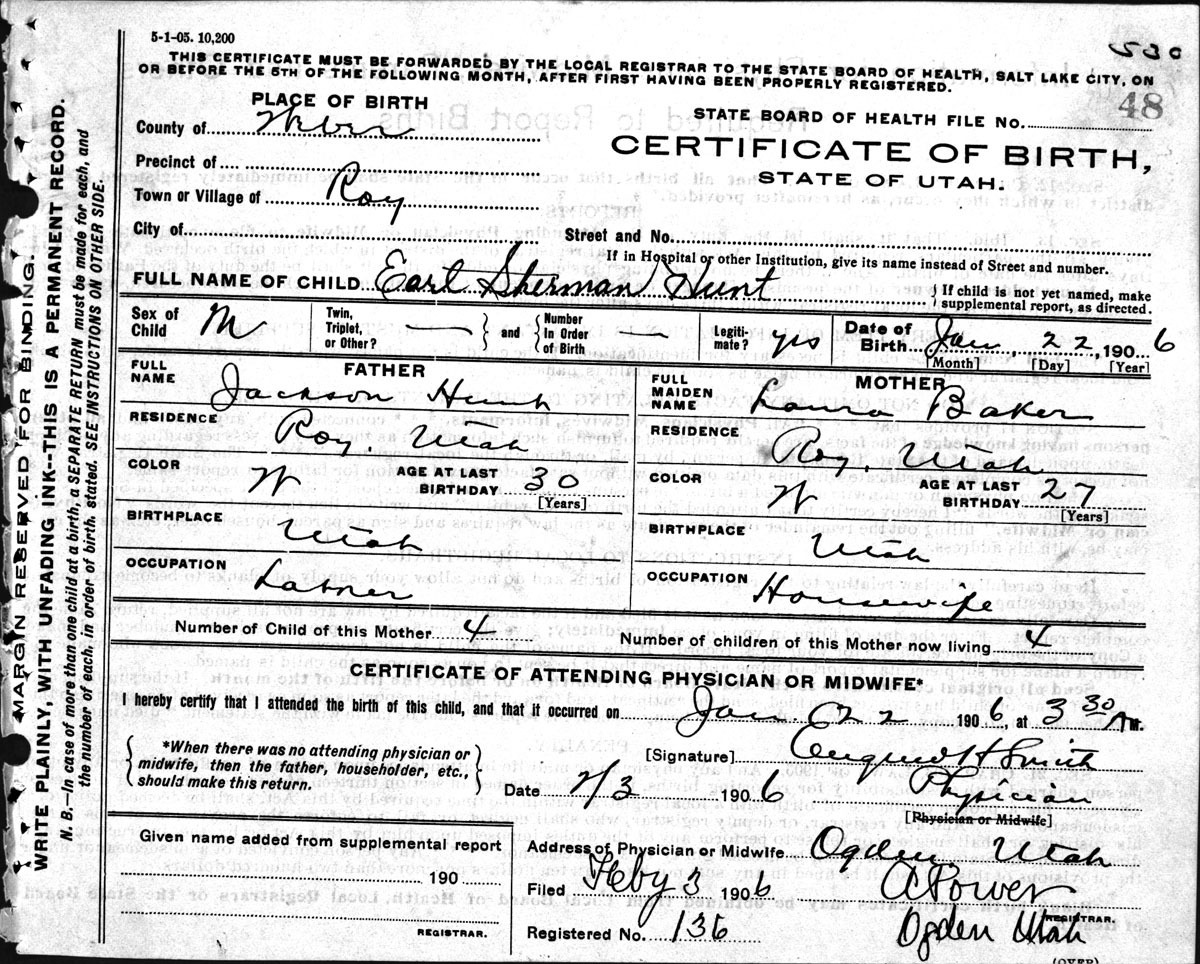 5-1-05. 10,200
530
THIS CERTIFICATE MUST BE FORWARDED BY THE LOCAL REGISTRAR TO THE STATE BOARD OF HEALTH, SALT LAKE CITY, ON
OR BEFORE THE 5TH OF THE FOLLOWING MONTH, AFTER FIRST HAVING BEEN PROPERLY REGISTERED.
PLACE OF BIRTH
County of Weber
Precinct of
Town or Village of Roy
City of
STATE BOARD OF HEALTH FILE NO. 48
CERTIFICATE OF BIRTH,
STATE OF UTAH.
Street and No.
If in Hospital or other Institution, give its name instead of Street and number.
FULL NAME OF CHILD Earl Sherman Hunt } If child is not yet named, make supplemental report, as directed.
Sex of Child M Twin, Triplet, or Other? } and { Number In Order of Birth — Legiti-mate? yes Date of Birth Jan 22, 1906
[Month] [Day] [Year]
FATHER
FULL NAME Jackson Hunt
RESIDENCE Roy. Utah
COLOR W AGE AT LAST BIRTHDAY 30
[Years]
BIRTHPLACE Utah
OCCUPATION Laborer
MOTHER
FULL MAIDEN NAME Laura Baker
RESIDENCE Roy. Utah
COLOR W AGE AT LAST BIRTHDAY 27
[Years]
BIRTHPLACE Utah
OCCUPATION Housewife
Number of Child of this Mother 4 Number of children of this Mother now living 4
CERTIFICATE OF ATTENDING PHYSICIAN OR MIDWIFE*
I hereby certify that I attended the birth of this child, and that it occurred on Jan 22 1906, at 3 30 AM.
{ *When there was no attending physician or
midwife, then the father, householder, etc.,
should make this return. }
[Signature] H Smith
Date 2/3 1906 Physician
[Physician or Midwife]
Given name added from supplemental report
190
REGISTRAR.
Address of Physician or Midwife Ogden Utah
Filed Feby 3 1906
REGISTRAR.
Registered No. 136 Ogden Utah
(OVER)
MARGIN RESERVED FOR BINDING.
WRITE PLAINLY, WITH UNFADING INK—THIS IS A PERMANENT RECORD.
N. B.—In case of more than one child at a birth, a SEPARATE RETURN must be made for each, and
the number of each, in order of birth, stated. SEE INSTRUCTIONS ON OTHER SIDE.